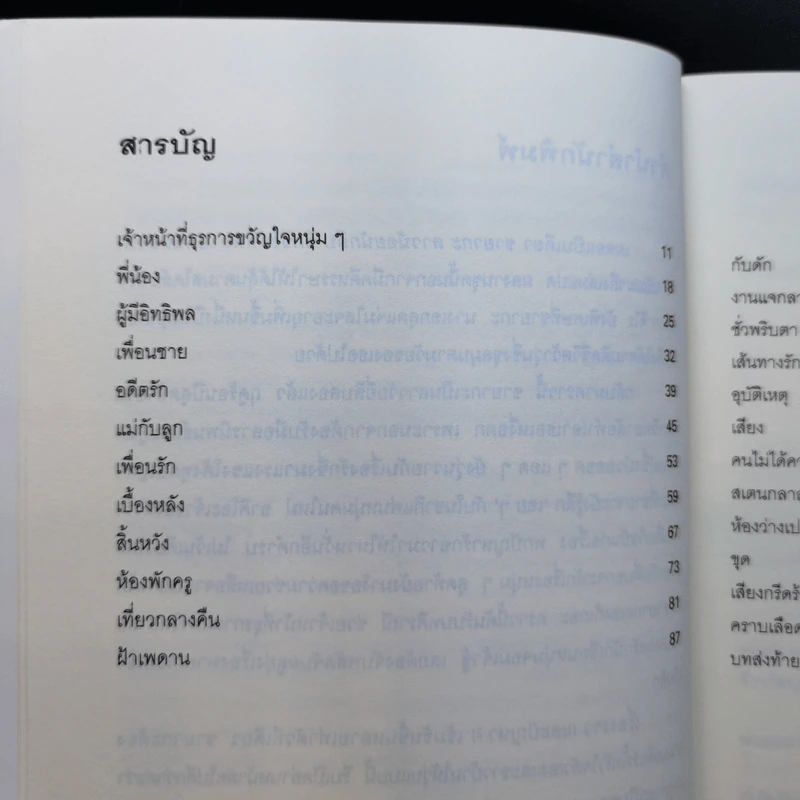 สารบัญ
เจ้าหน้าที่ธุรการขวัญใจหนุ่ม ๆ 11
พี่น้อง 18
ผู้มีอิทธิพล 25
เพื่อนซาย 32
อดีตรัก 39
แม่กับลูก 45
เพื่อนรัก 53
เบื้องหลัง 59
สิ้นหวัง 67
ห้องพักครู 73
เที่ยวกลางคืน 81
ฝ้าเพดาน 87
กับดัก
งานแจกลา
ชั่วพริบตา
เส้นทางรัก
อุบัติเหตุ
เสียง
คนไม่ได้คา
สเตนกลาส
ห้องว่างเป
ชุด
เสียงกรีดร้
คราบเลือด
บทส่งท้าย